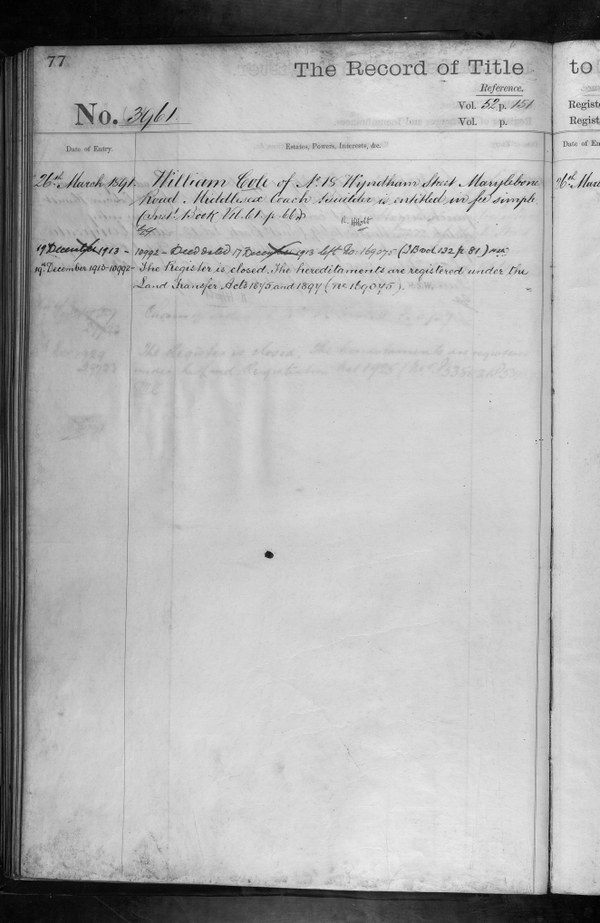 77
The Record of Title
to
Reference.
Vol. 52 p. 151
Vol. p.
No. 3961
Date of Entry.
Estates, Powers, Interests, &c.
26th March 1891.
William Cole of No. 18 Wyndham Street Marylebone
Road Middlesex Coach Builder is entitled in fee simple
(Inst. Book Vol. 61. p. 66)
19 December 1913 -
10992 - Deed dated 17 December 1913 left Co 169075 (I Book 132 p 81)
19th December 1913 - 10992 -
The Register is closed. The hereditaments are registered under the
Land Transfer Acts 1875 and 1897 (No 169075).